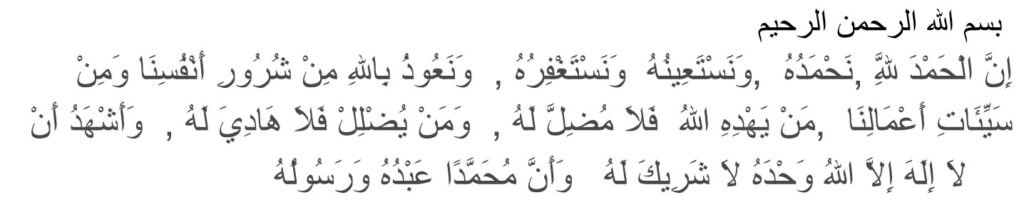 بسم الله الرحمن الرحيم
إِنَّ الْحَمْدَ للهَِّ ,نَحْمَدُهُ ,وَنَسْتَعِينُهُ وَنَسْتَغْفِرُهُ , وَنَعُوذُ بِاللهِ مِنْ شُرُورِ أَنْفُسِنَا وَمِنْ
سَيِّئَاتِ أَعْمَالِنَا ,مَنْ يَهْدِهِ اللهُ فَلاَ مُضِلَّ لَهُ , وَمَنْ يُضْلِلْ فَلاَ هَادِيَ لَهُ , وَأَشْهَدُ أَنْ
لاَ إِلَهَ إِلاَّ اللهُ وَحْدَهُ لاَ شَرِيكَ لَهُ وَأَنَّ مُحَمَّدًا عَبْدُهُ وَرَسُولُهُ